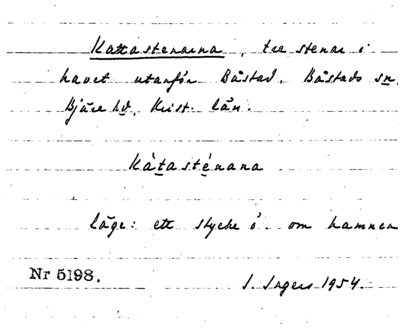 Kattastenarna, tre stenar i
havet utanför Båstad. Båstads sn,
Bjäre hd, Krist. län.
Kàtasténana
Läge: ett stycke ö. om hamnen
Nr 5198. I. Ingers 1954.